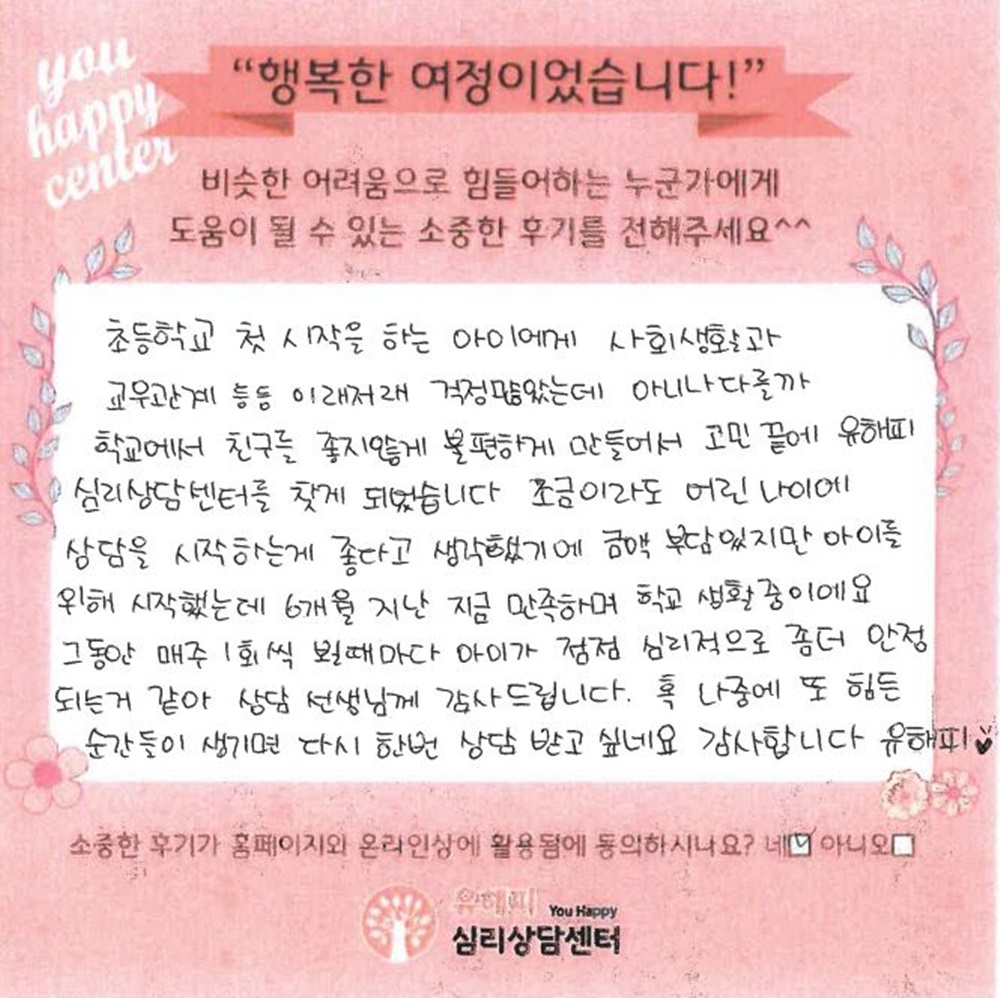 you
happy
center
“행복한 여정이었습니다!”
비슷한 어려움으로 힘들어하는 누군가에게
도움이 될 수 있는 소중한 후기를 전해주세요^^
초등학교 첫 시작을 하는 아이에게 사회생활과
교우관계 등등 이래저래 걱정많았는데 아니나다를까
학교에서 친구를 좋지않게 불편하게 만들어서 고민 끝에 유해피
심리상담센터를 찾게 되었습니다 조금이라도 어린 나이에
상담을 시작하는게 좋다고 생각했기에 금액 부담있지만 아이를
위해 시작했는데 6개월 지난 지금 만족하며 학교 생활중이에요
그동안 매주 1회씩 뵐때마다 아이가 점점 심리적으로 좀더 안정
되는거 같아 상담 선생님께 감사드립니다. 혹 나중에 또 힘든
순간들이 생기면 다시 한번 상담 받고 싶네요 감사합니다 유해피
소중한 후기가 홈페이지와 온라인상에 활용됨에 동의하시나요? 네☑ 아니오☐
유해피 You Happy
심리상담센터